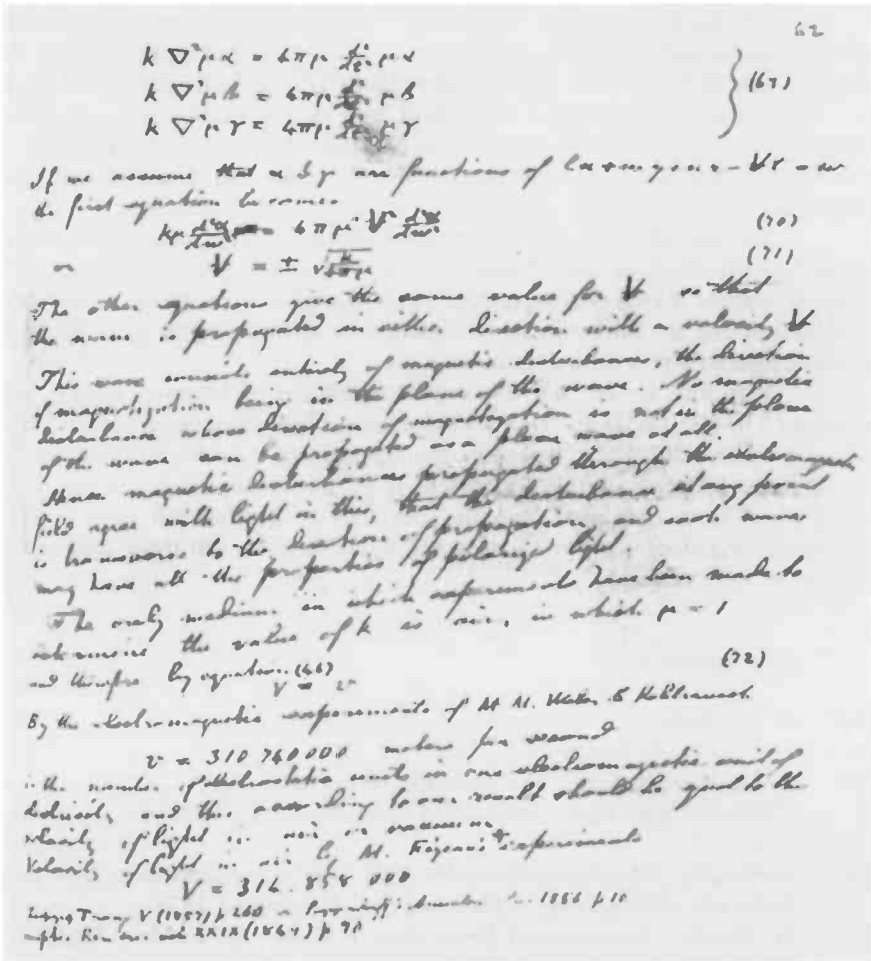 62
k ∇² μ α = 4πμ d²/dt² μ α
k ∇² μ β = 4πμ d²/dt² μ β } (69)
k ∇² μ γ = 4πμ d²/dt² μ γ
If we assume that α β γ are functions of lx + my + nz - Vt = w
the first equation becomes
kμ d²α/dw² = 4πμ² V² d²α/dw² (70)
or V = ± √k/4πμ (71)
The other equations give the same value for V so that
the wave is propagated in either direction with a velocity V
This wave consists entirely of magnetic disturbances, the direction
of magnetization being in the plane of the wave. No magnetic
disturbance whose direction of magnetization is not in the plane
of the wave can be propagated as a plane wave at all.
Hence magnetic disturbances propagated through the electromagnetic
field agree with light in this, that the disturbance at any point
is transverse to the direction of propagation, and such waves
may have all the properties of polarized light.
The only medium in which experiments have been made to
determine the value of k is air, in which μ = 1
and therefore by equation (46)
V = v (72)
By the electromagnetic experiments of M M. Weber & Kohlrausch
v = 310 740 000 metres per second
is the number of electrostatic units in one electromagnetic unit of
electricity and this according to our result should be equal to the
velocity of light in air or vacuum
Velocity of light in air by M. Fizeau's experiments
V = 314.858 000
Trans V (1857) p 260 or Poggendorff's Annalen 1856 p 10
XXIX (1849) p 90